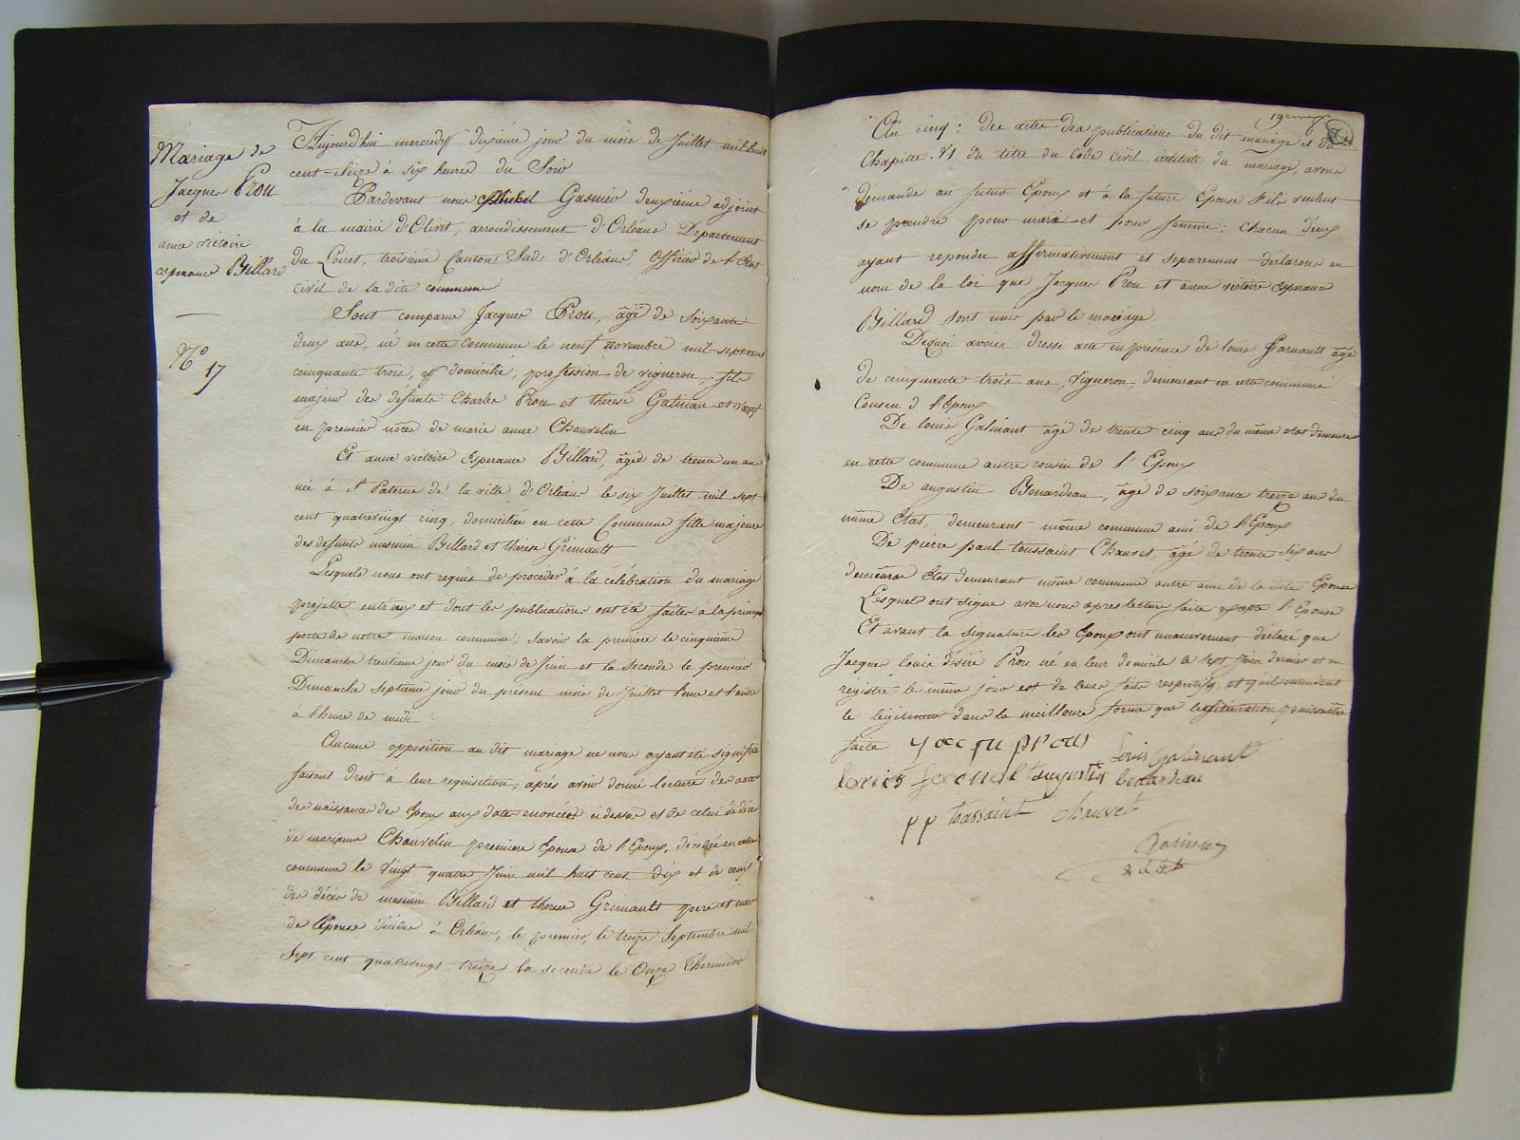 Mariage de
Jacque Prou
et de
anne victoire
esperance Billard
N.º 17
Aujourdhui mercredy dixieme jour du mois de Juillet mil huit
cent-seize à six heures du Soir
Pardevant nous Michel Gasnier deuxieme adjoint
à la mairie d'Olivet, arrondissement d'Orleans Departement
du Loiret, troisieme Canton Sud d'Orleans Officier de l'Etat
civil de la dite commune
Sont comparus Jacques Prou, âgé de Soixante
deux ans, né en cette commune le neuf novembre mil-sept cent
cinquante trois, y domicilié, profession de vigneron, fils
majeur des defunts Charles Prou et therese Galinau et veuf
en premier nôces de marie anne Chauvelin
Et anne victoire Esperance Billard, âgée de trente un ans
née à St Paterne de la ville d'Orleans le six Juillet mil sept
cent quatrevingt cinq, domiciliée en cette Commune fille majeure
des defunts maximin Billard et therese Grimault
Lesquels nous ont requis de proceder à la célébration du mariage
projetté entr'eux et dont les publications ont été faites à la principale
porte de notre maison commune, savoir la premiere le cinquieme
Dimanche trentieme jour du mois de Juin et la seconde le premier
Dimanche septieme jour du présent mois de Juillet l'une et l'autre
à l'heure de midi
Aucune opposition au dit mariage ne nous ayant été signifiée
faisant droit a leur requisition, après avoir donné lecture des actes
de naissance des Epoux aux dates enoncées ci dessus et de celui de décès
de marianne Chauvelin premiere Epouse de l'Epoux, décédée en cette
commune le vingt quatre Juin mil huit cent dix et de ceux
de décès de maximin Billard et therese Grimault pere et mere
de l'Epouse décédés à Orleans, le premier, le treize Septembre mil
sept cent quatrevingt-treize la seconde le Onze Thermidor
19
An cinq: des actes des publications du dit mariage et du
Chapitre VI du titre du Code Civil intitulé du mariage, avons
demandé au futur Epoux et à la future Epouse s'ils veulent
se prendre pour mari et pour femme: chacun d'eux
ayant repondu affirmativement et separement declarons au
nom de la loi que Jacques Prou et anne victoire esperance
Billard sont unis par le mariage
De quoi avons dressé acte en présence de louis Farnault âgé
de cinquante trois ans, Vigneron, demeurant en cette commune
Cousin de l'Epoux
De louis Galinant âgé de trente cinq ans du même état demeurant
en cette commune autre cousin de l'Epoux
De augustin Benardeau, âgé de soixante treize ans du
même état, demeurant même commune ami de l'Epoux
De pierre paul toussaint Chauvet âgé de trente six ans
de même état demeurant même commune autre ami de la dite Epouse
Lesquels ont signé avec nous après lecture faite excepté l'Epouse
Et avant la signature les Epoux ont unanimement declaré que
Jacque louis desiré Prou né en leur domicile le sept Juin dernier et en
registré le même jour est de leur fait respectif, et qu'ils entendent
le légitimer dans la meilleure forme que legitimation puisse être
faite
Jacque prou
Louis Galinant
louis farnault augustin benardeau
pp toussaint chauvet
Gasnier
adjt